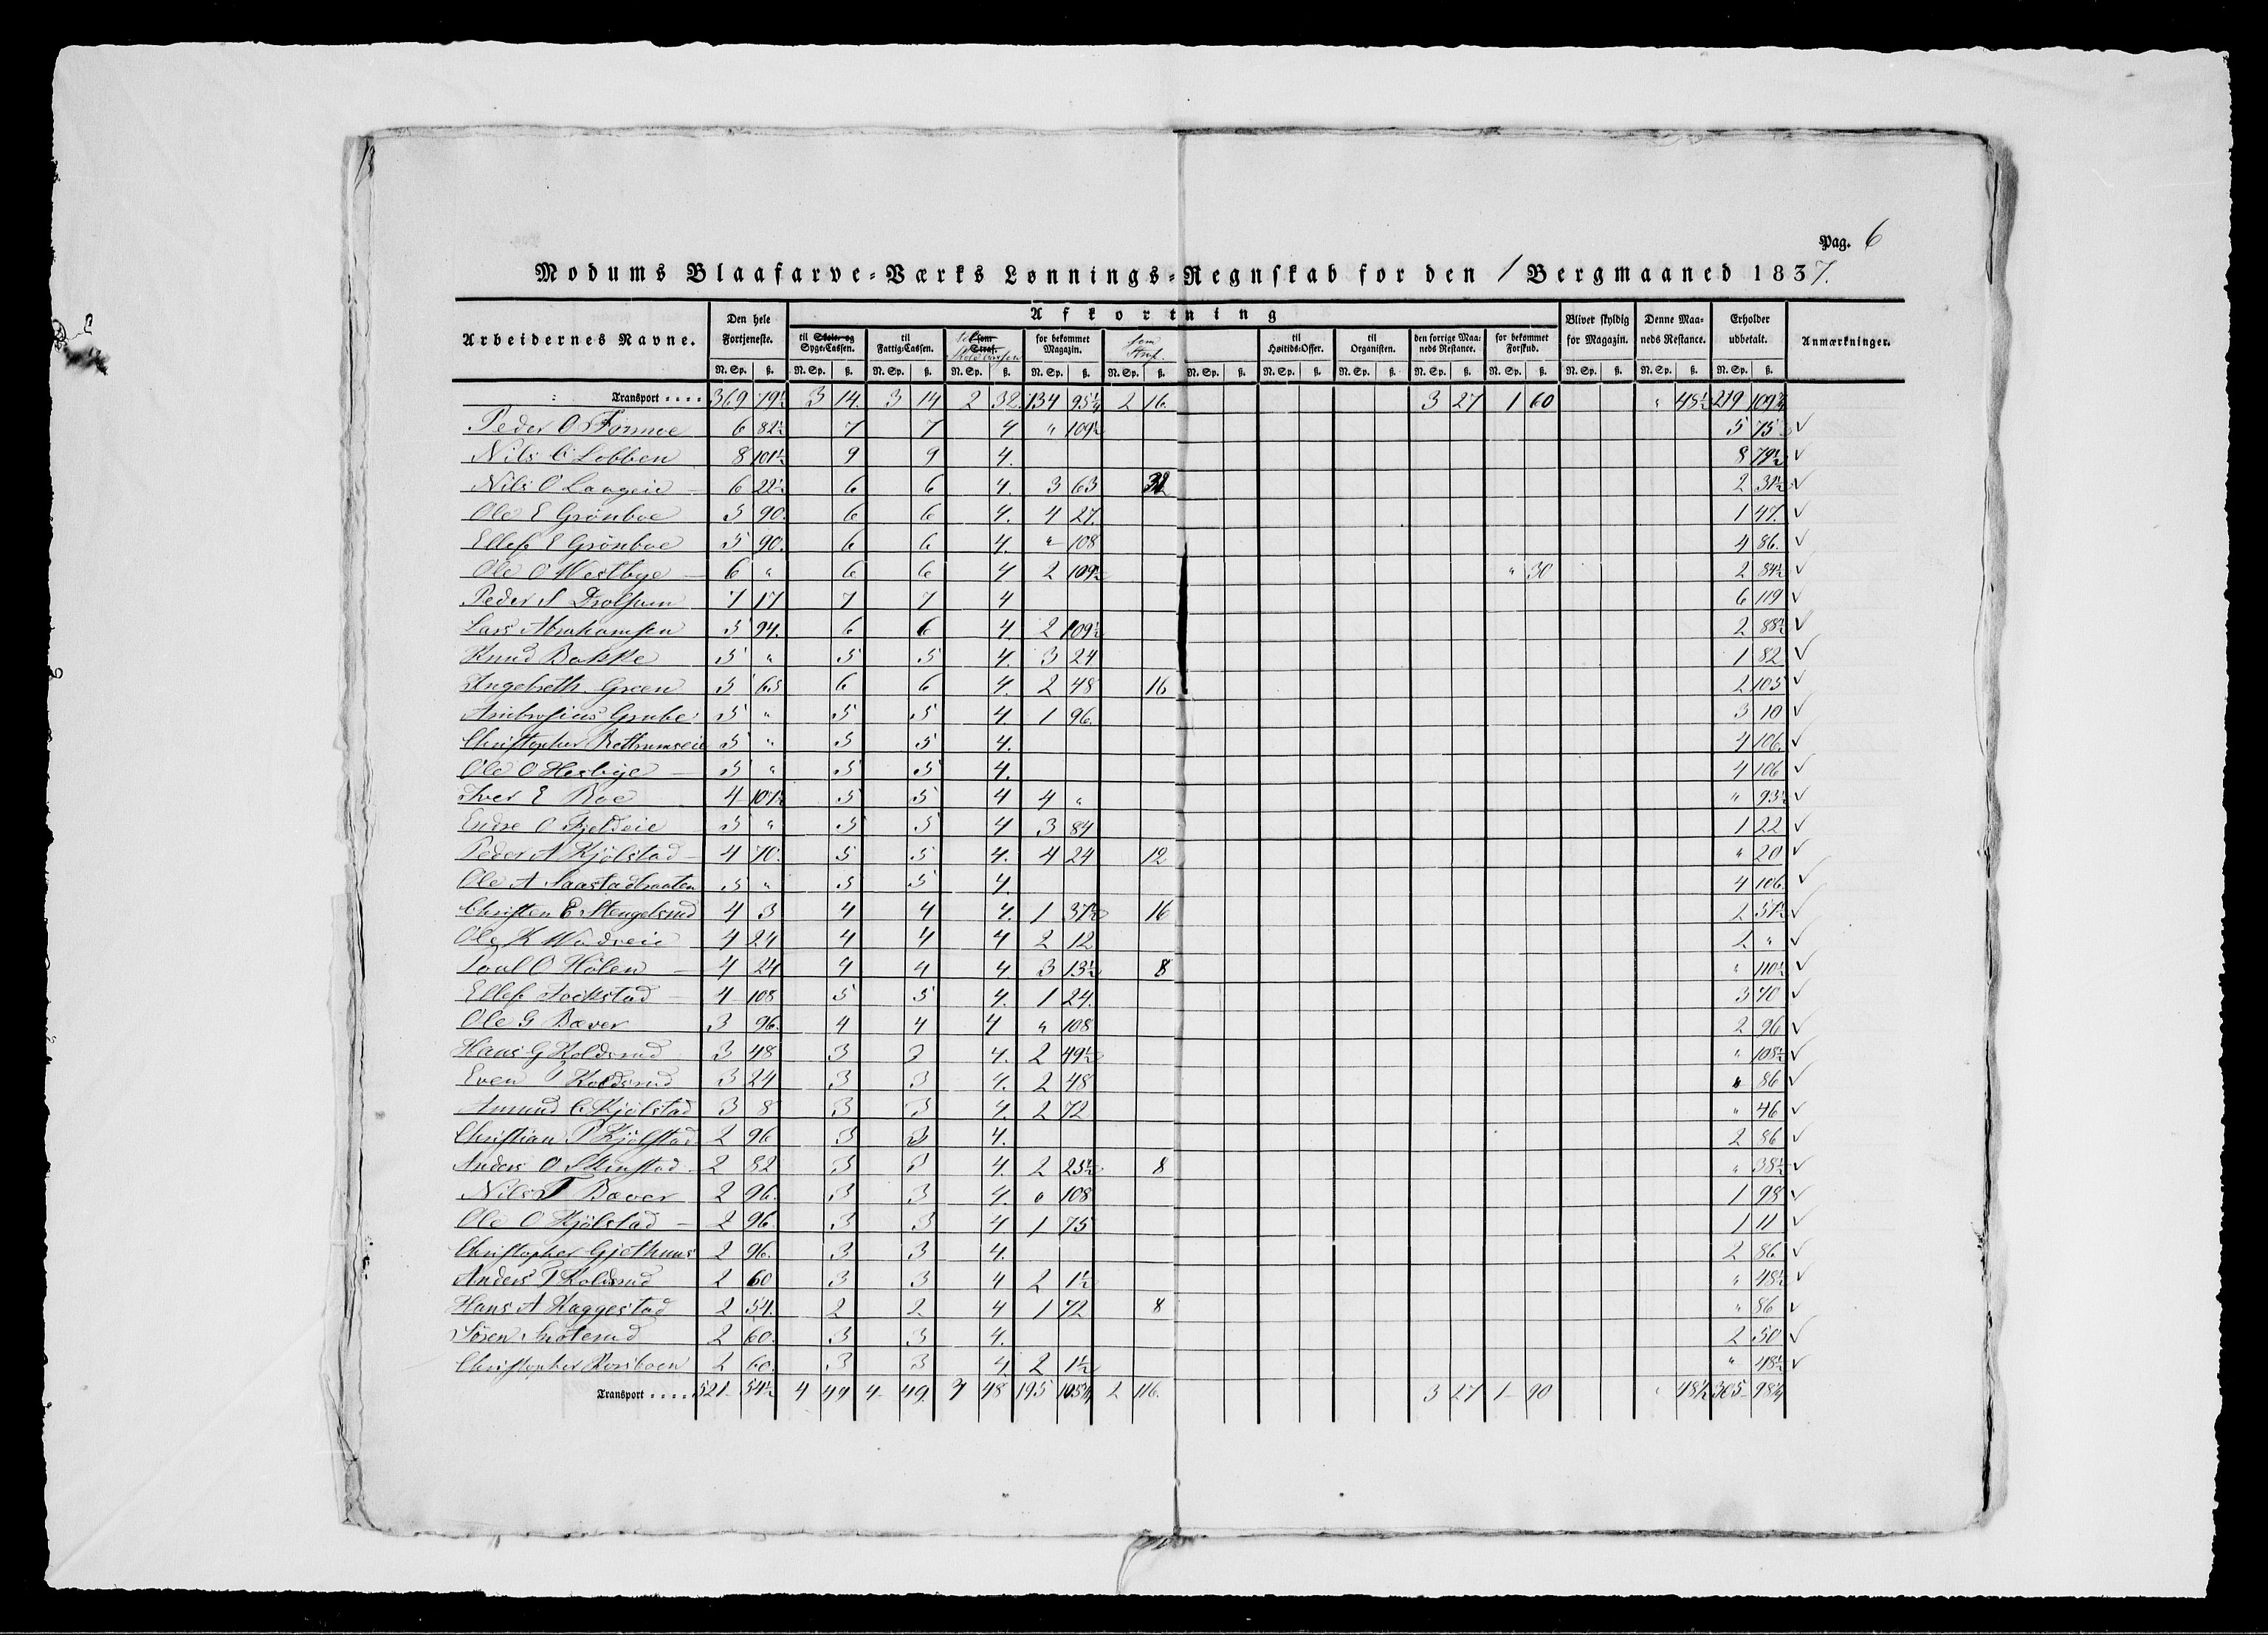 Pag. 6
Modums Blaafarve-Værks Lønnings-Regnskab for den 1 Bergmaaned 1837.
Arbeidernes Navne. Den hele Fortjeneste. Afkortning Bliver skyldig for Magazin. Denne Maaneds Restance. Erholder udbetalt. Anmærkninger.
til Skole- og Syge-Cassen. til Fattig-Cassen. til som Straf. for bekommet Magazin. Som Straf. til Høitids-Offer. til Organisten. den forrige Maaneds Restance. for bekommet Forskud.
N. Sp. ß. N. Sp. ß. N. Sp. ß. N. Sp. ß. N. Sp. ß. N. Sp. ß. N. Sp. ß. N. Sp. ß. N. Sp. ß. N. Sp. ß. N. Sp. ß. N. Sp. ß. N. Sp. ß. N. Sp. ß.
Transport .... 369 79½ 3 14. 3 14 2 32. 134 95¼ 2 16. 3 27 1 60 " 48½ 219 109¾
Peder O Formoe 6 82½ 7 7 4 " 109½ 5 75 ✓
Nils C Lobben 8 101½ 9 9 4. 8 79½ ✓
Nils O Laageie 6 22½ 6 6 4. 3 63 32 2 31½ ✓
Ole E Grönboe 5 90. 6 6 4. 4 27. 1 47. ✓
Ellef E Grönboe 5 90. 6 6 4. " 108 4 86. ✓
Ole O Westbye 6 " 6 6 4 2 109½ " 30 2 84½ ✓
Peder S Drolsum 7 17 7 7 4 6 119 ✓
Lars Abrahamsen 5 94. 6 6 4. 2 109½ 2 88½ ✓
Knud Bakke 5 " 5 5 4. 3 24 1 82 ✓
Angebreth Green 5 65 6 6 4. 2 48 16 2 105 ✓
Ambrosius Grube 5 " 5 5 4. 1 96. 3 10 ✓
Christopher Bethumseie 5 " 5 5 4. 4 106. ✓
Ole O Hesbye 5 " 5 5 4. 4 106 ✓
Iver E Boe 4 107½ 5 5 4 4 " " 93½ ✓
Endre O Fjeldeie 5 " 5 5 4 3 84 1 22 ✓
Peder A Kjölstad 4 70. 5 5 4. 4 24 12 " 20 ✓
Ole A Saastadbraaten 5 " 5 5 4. 4 106. ✓
Christen E Stengelsrud 4 3 4 4 4. 1 37½ 16 2 51½ ✓
Ole K Wadseie 4 24 4 4 4 2 12 2. " ✓
Poul O Hölen 4 24 4 4 4. 3 13½ 8 " 110½ ✓
Ellef Fockstad 4 108 5 5 4. 1 24. 3 70 ✓
Ole G Bæver 3 96. 4 4 4 " 108 2 96 ✓
Hans G Koldsrud 3 48 3 3 4. 2 49½ " 108½ ✓
Even T Koldsrud 3 24 3 3 4. 2 48 " 86 ✓
Amund C Kjölstad 3 8 3 3 4. 2 72 " 46 ✓
Christian P Kjölstad 2 96 3 3 4. 2 86 ✓
Anders O Skinstad 2 82 3 3 4. 2 23½ 8 " 38½ ✓
Nils T Bæver 2 96. 3 3 4. " 108 1 98 ✓
Ole O Kjölstad 2 96. 3 3 4 1 75 1 11 ✓
Christopher Gjethuus 2 96. 3 3 4. 2 86 ✓
Anders T Koldsrud 2 60 3 3 4 2 1½ " 48½ ✓
Hans A Kaggestad 2 54. 2 2 4 1 72 8 " 86 ✓
Sören Snolerud 2 60. 3 3 4. 2 50 ✓
Christopher Korsboen 2 60. 3 3 4. 2 1½ " 48½ ✓
Transport .... 521 54½ 4 49 4 49. 3 48 195 105¼ 2 116. 3 27 1 90 " 48½ 305 98¼